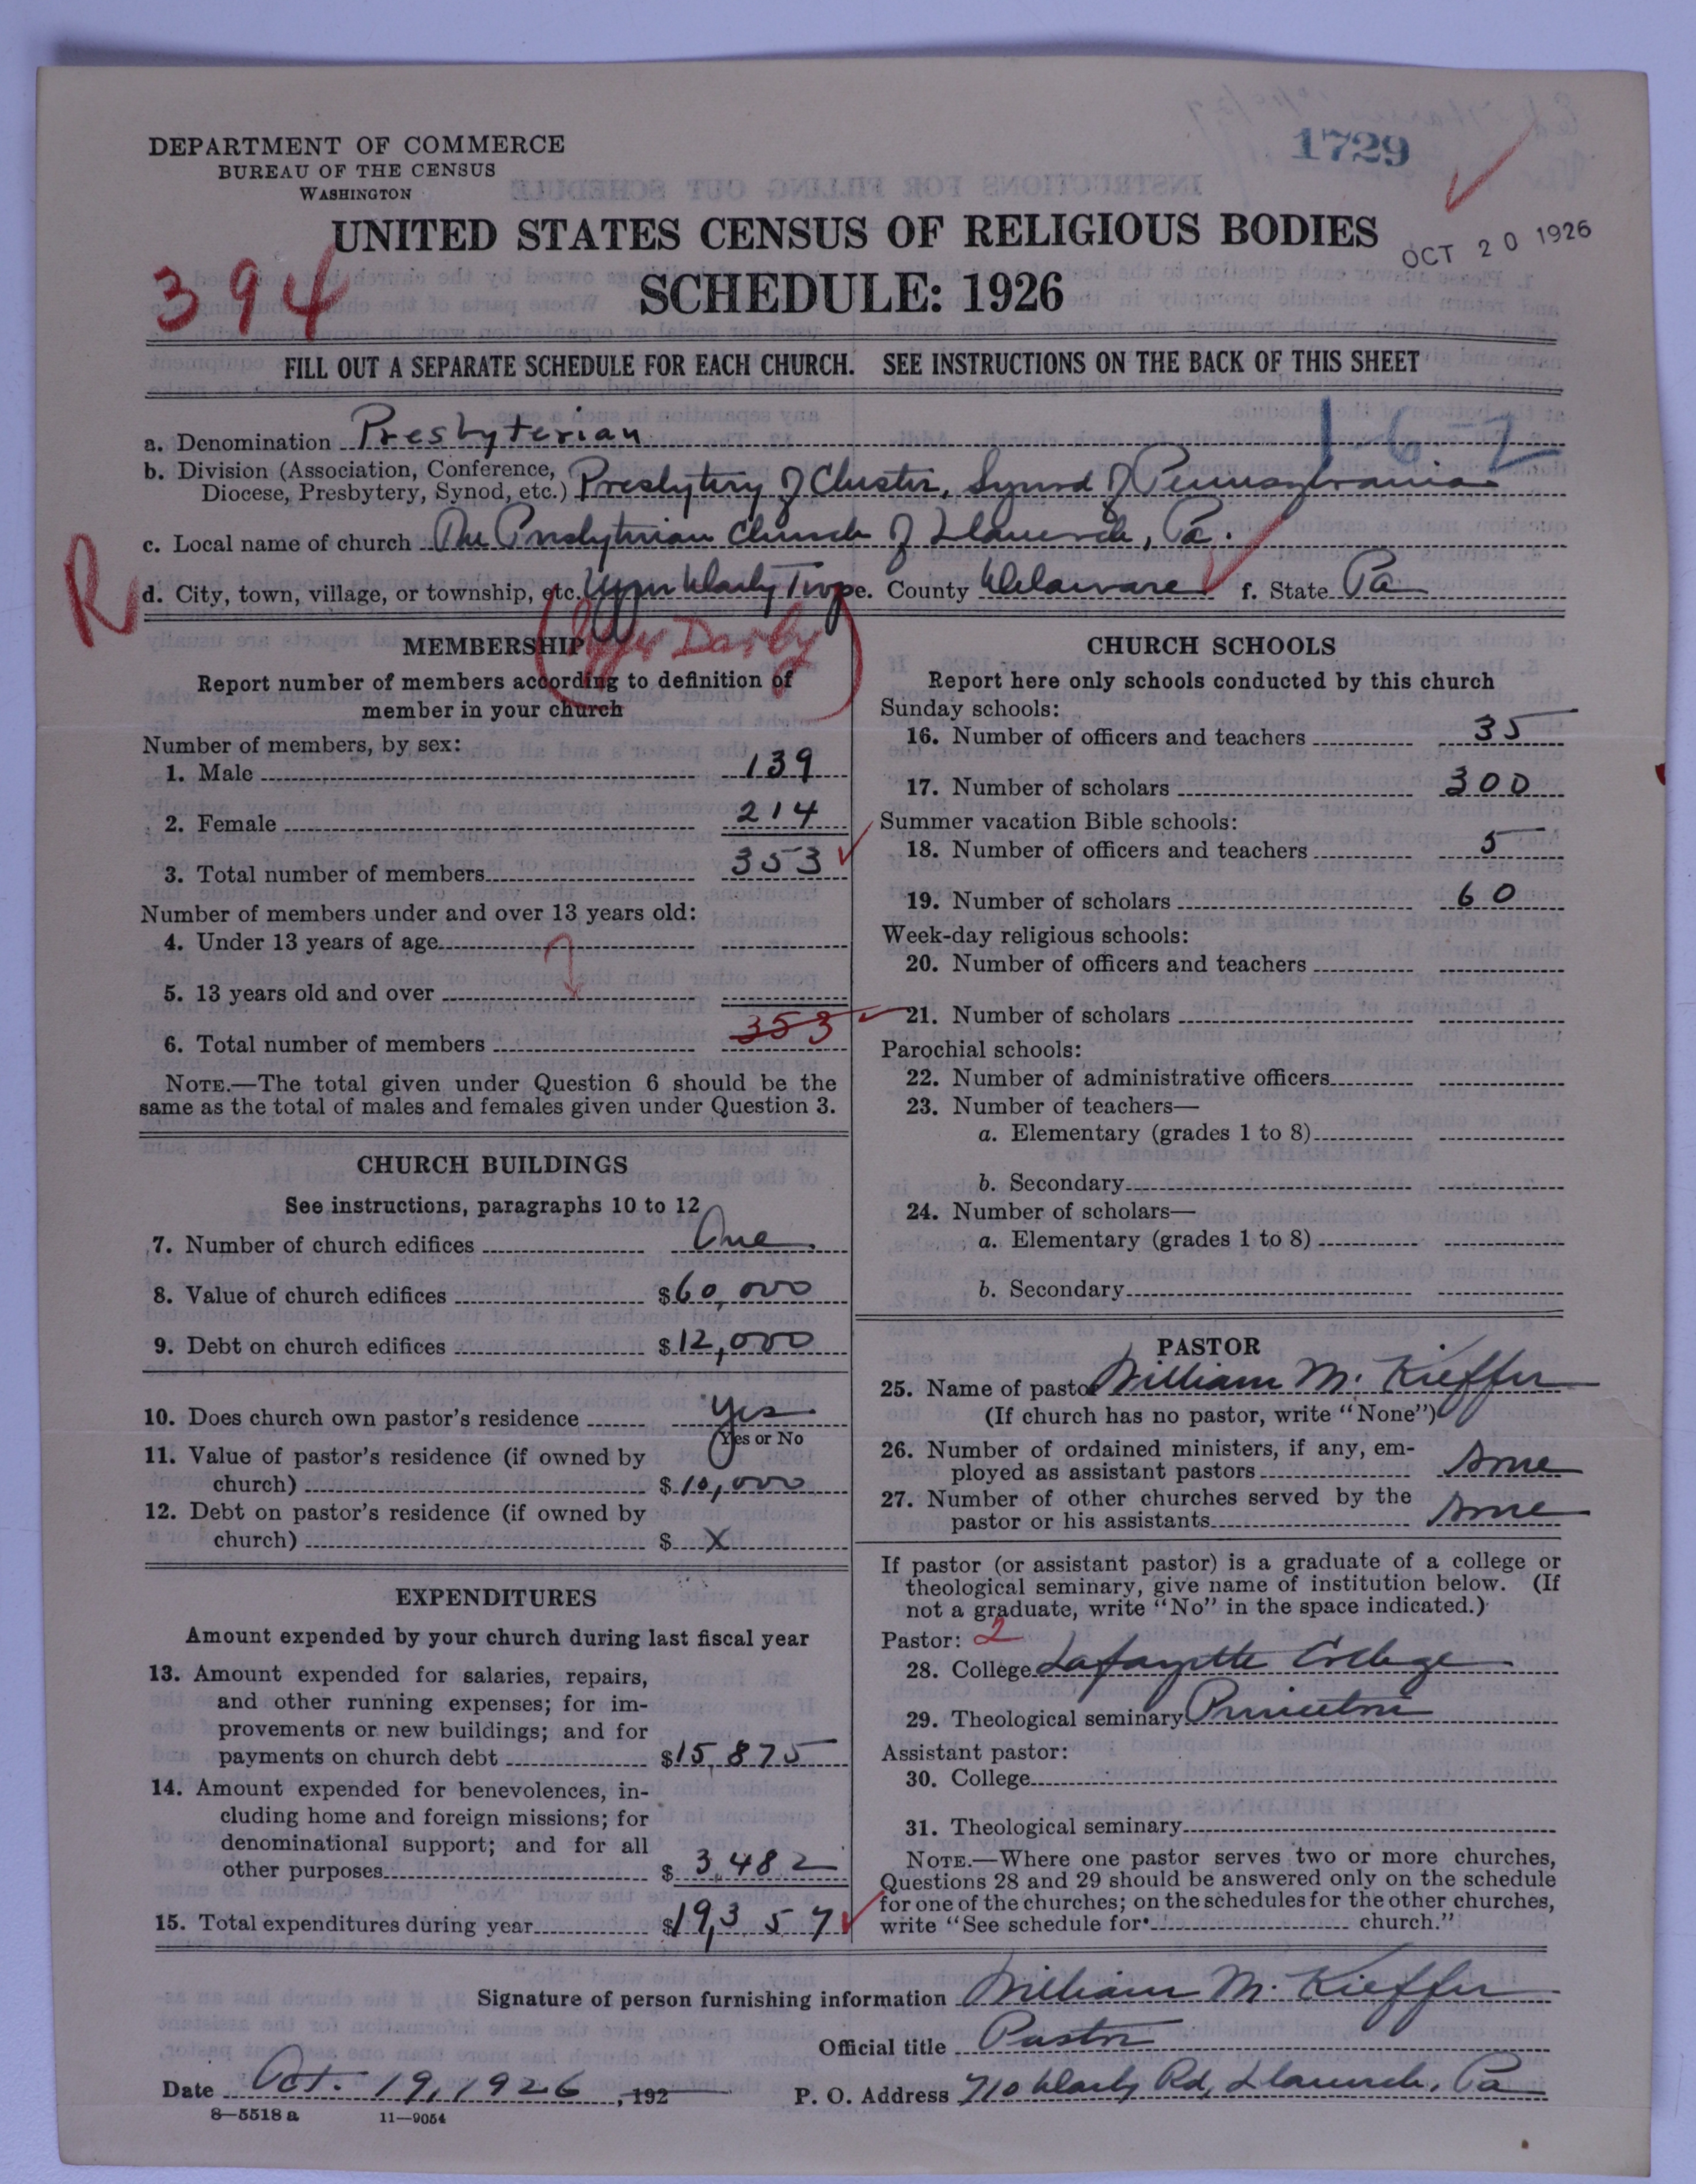 DEPARTMENT OF COMMERCE
BUREAU OF THE CENSUS
WASHINGTON
1729
UNITED STATES CENSUS OF RELIGIOUS BODIES
OCT 20 1926
394
SCHEDULE: 1926
FILL OUT A SEPARATE SCHEDULE FOR EACH CHURCH. SEE INSTRUCTIONS ON THE BACK OF THIS SHEET
a. Denomination Presbyterian
1-6-2
b. Division (Association, Conference, Diocese, Presbytery, Synod, etc.) Presbytery of Chester, Synod of Pennsylvania
c. Local name of church The Presbyterian Church of Llanerch, Pa.
R
d. City, town, village, or township, etc. Upper Darby Twp e. County Delaware f. State Pa
Upper Darby
MEMBERSHIP
Report number of members according to definition of
member in your church
Number of members, by sex:
1. Male 139
2. Female 214
3. Total number of members 353
Number of members under and over 13 years old:
4. Under 13 years of age
5. 13 years old and over
6. Total number of members 353
NOTE.—The total given under Question 6 should be the
same as the total of males and females given under Question 3.
CHURCH BUILDINGS
See instructions, paragraphs 10 to 12
7. Number of church edifices One
8. Value of church edifices $60,000
9. Debt on church edifices $12,000
10. Does church own pastor's residence yes
Yes or No
11. Value of pastor's residence (if owned by
church) $10,000
12. Debt on pastor's residence (if owned by
church) $ X
EXPENDITURES
Amount expended by your church during last fiscal year
13. Amount expended for salaries, repairs,
and other running expenses; for im-
provements or new buildings; and for
payments on church debt $15,875
14. Amount expended for benevolences, in-
cluding home and foreign missions; for
denominational support; and for all
other purposes $3,482
15. Total expenditures during year $19,357
CHURCH SCHOOLS
Report here only schools conducted by this church
Sunday schools:
16. Number of officers and teachers 35
17. Number of scholars 300
Summer vacation Bible schools:
18. Number of officers and teachers 5
19. Number of scholars 60
Week-day religious schools:
20. Number of officers and teachers
21. Number of scholars
Parochial schools:
22. Number of administrative officers
23. Number of teachers—
a. Elementary (grades 1 to 8)
b. Secondary
24. Number of scholars—
a. Elementary (grades 1 to 8)
b. Secondary
PASTOR
25. Name of pastor William M. Kieffer
(If church has no pastor, write "None")
26. Number of ordained ministers, if any, em-
ployed as assistant pastors none
27. Number of other churches served by the
pastor or his assistants none
If pastor (or assistant pastor) is a graduate of a college or
theological seminary, give name of institution below. (If
not a graduate, write "No" in the space indicated.)
Pastor: 2
28. College Lafayette College
29. Theological seminary Princeton
Assistant pastor:
30. College
31. Theological seminary
NOTE.—Where one pastor serves two or more churches,
Questions 28 and 29 should be answered only on the schedule
for one of the churches; on the schedules for the other churches,
write "See schedule for church."
Signature of person furnishing information William M. Kieffer
Official title Pastor
Date Oct. 19, 1926, 192
P. O. Address 710 Darby Rd, Llanerch, Pa
8—5518 a 11—9054